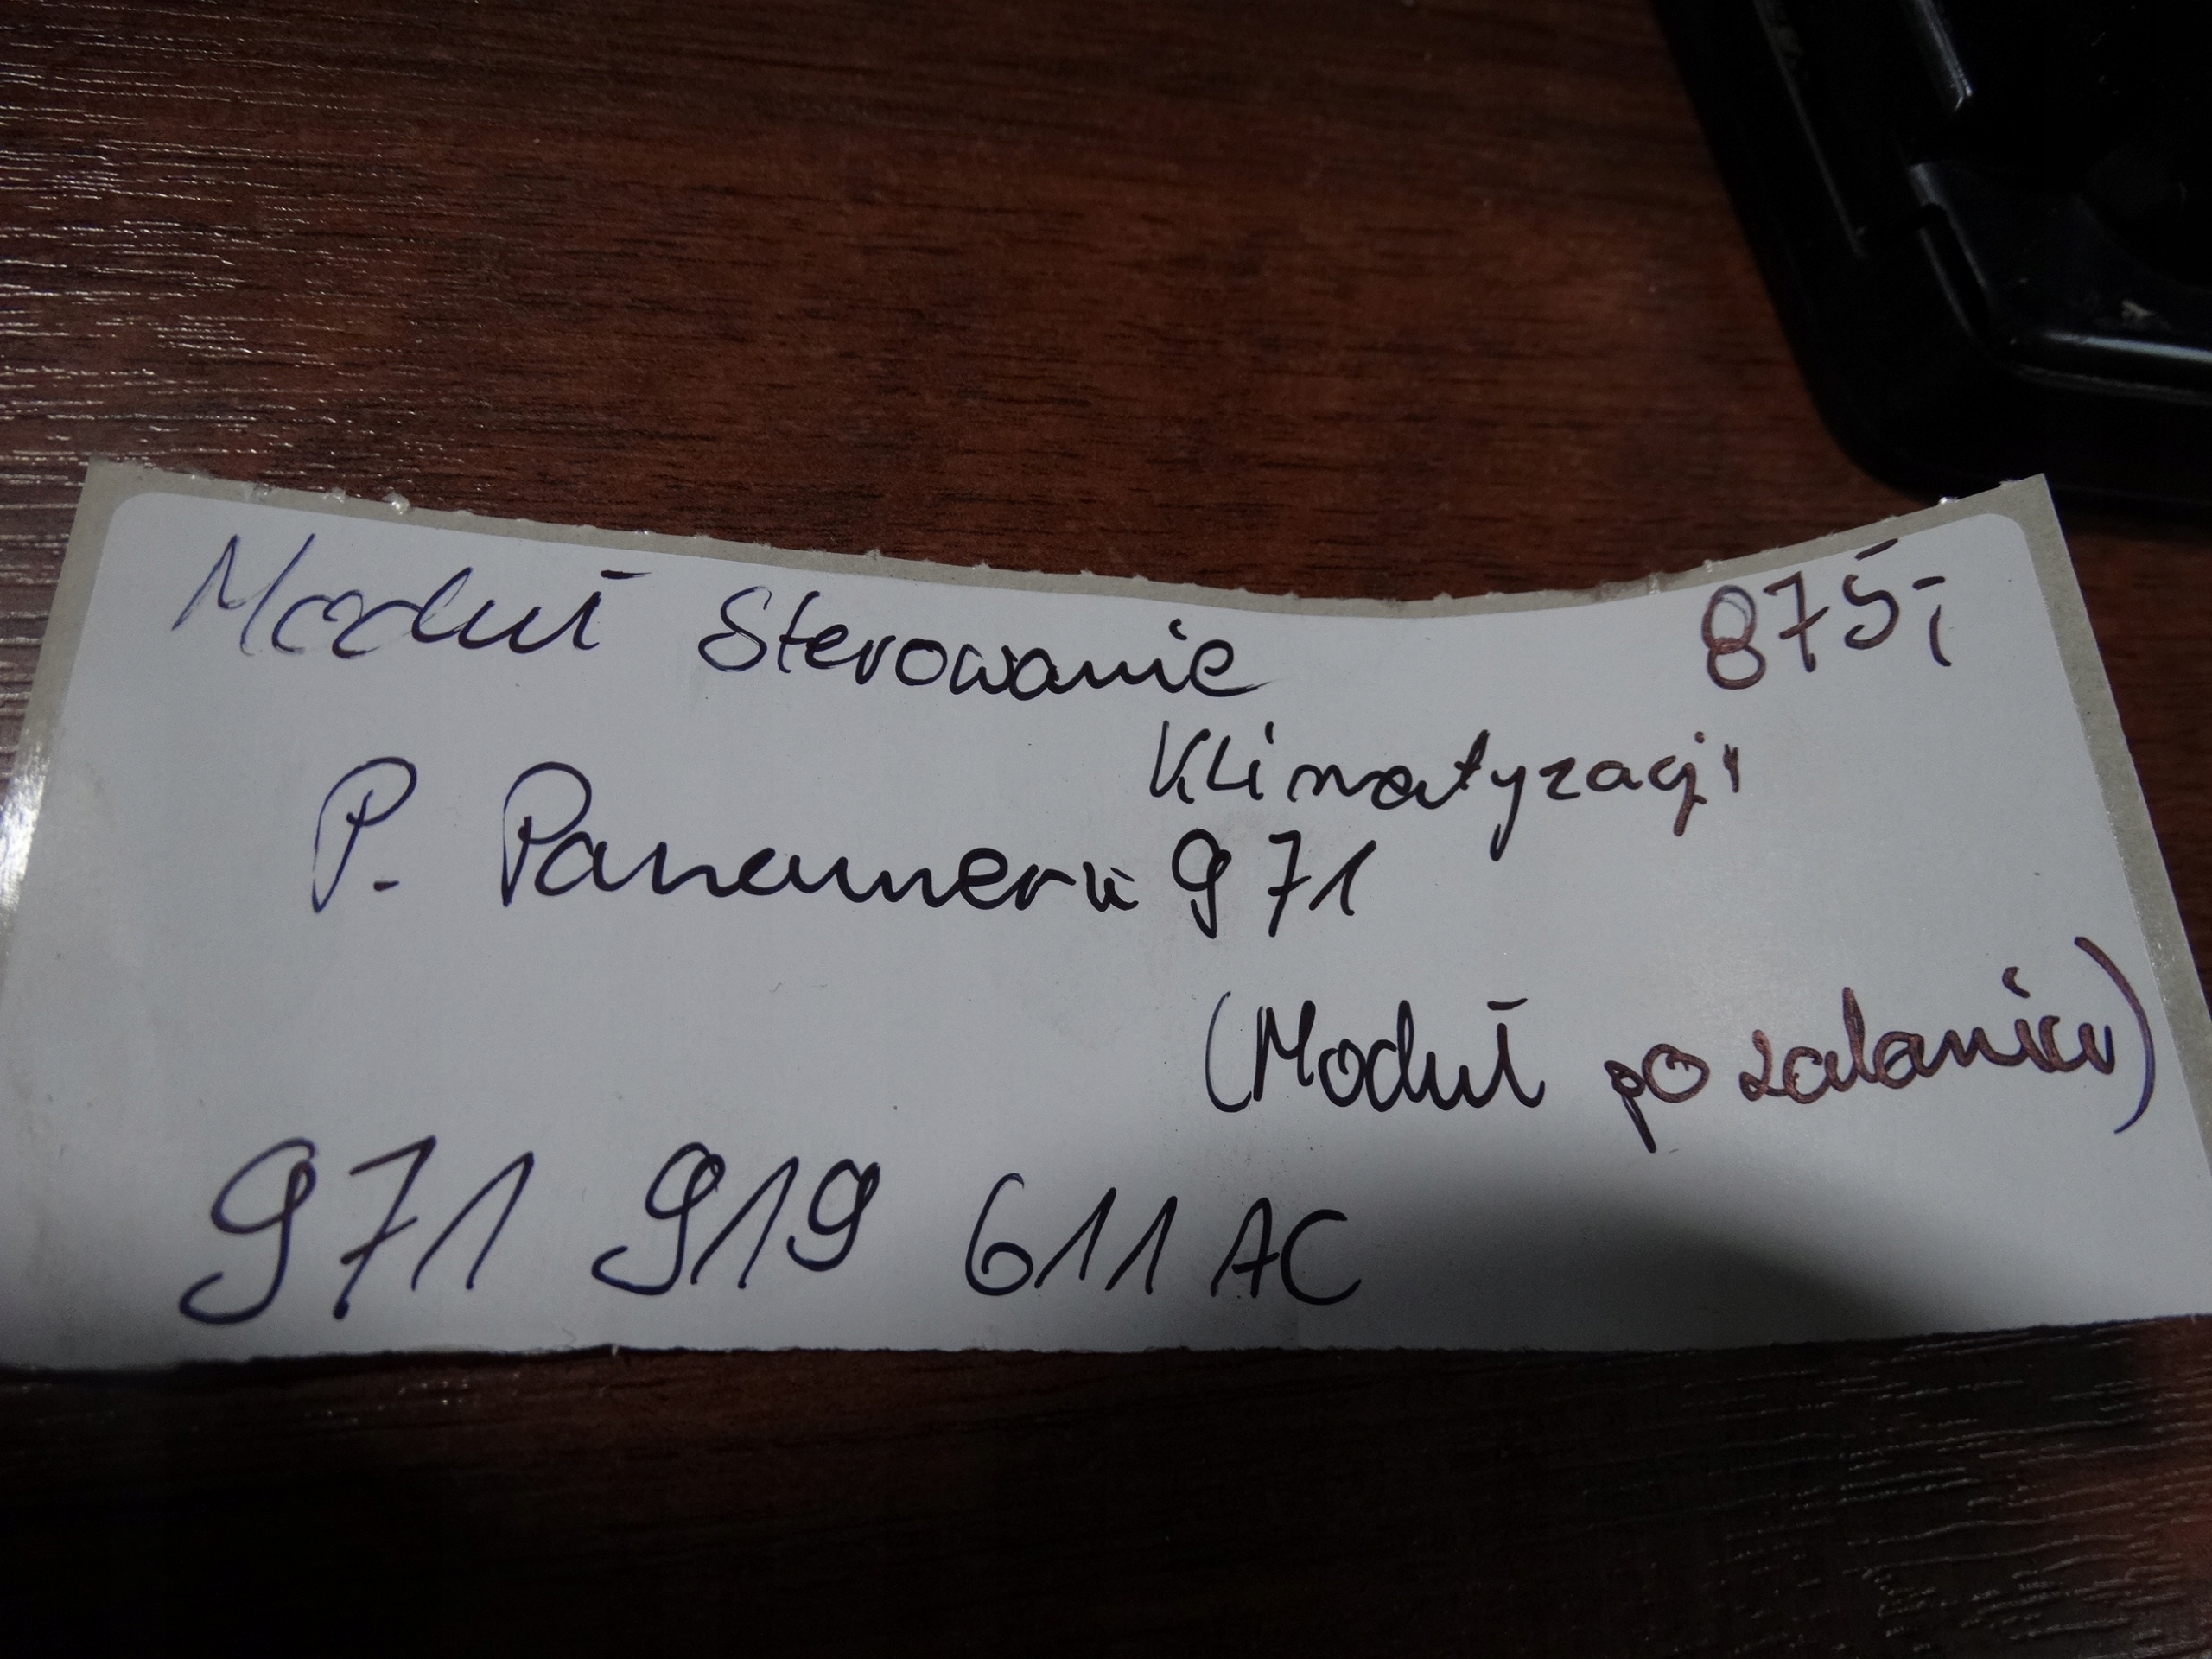 Moduł Sterowanie 875,-
Klimatyzacji
P. Panamera 971
(Moduł po zalaniu)
971 919 611 AC